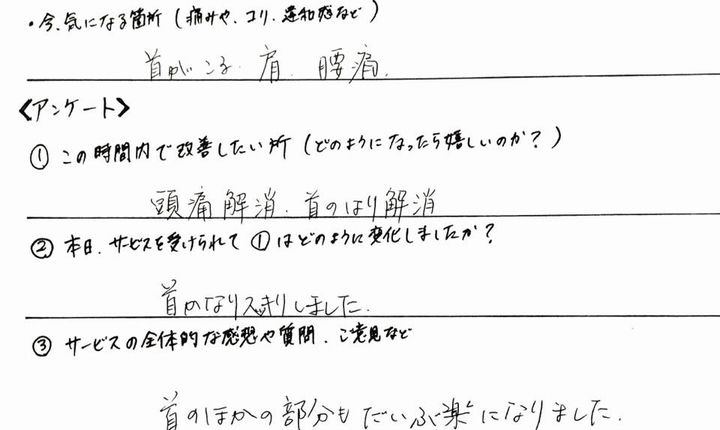 ・今、気になる箇所(痛みや、コリ、違和感など)
首がこる、肩、腰痛、
<アンケート>
① この時間内で改善したい所(どのようになったら嬉しいのか?)
頭痛解消、首のはり解消
② 本日、サービスを受けられて①はどのように変化しましたか?
首かなりスッキリしました。
③ サービスの全体的な感想や質問、ご意見など
首のほかの部分もだいぶ楽になりました。